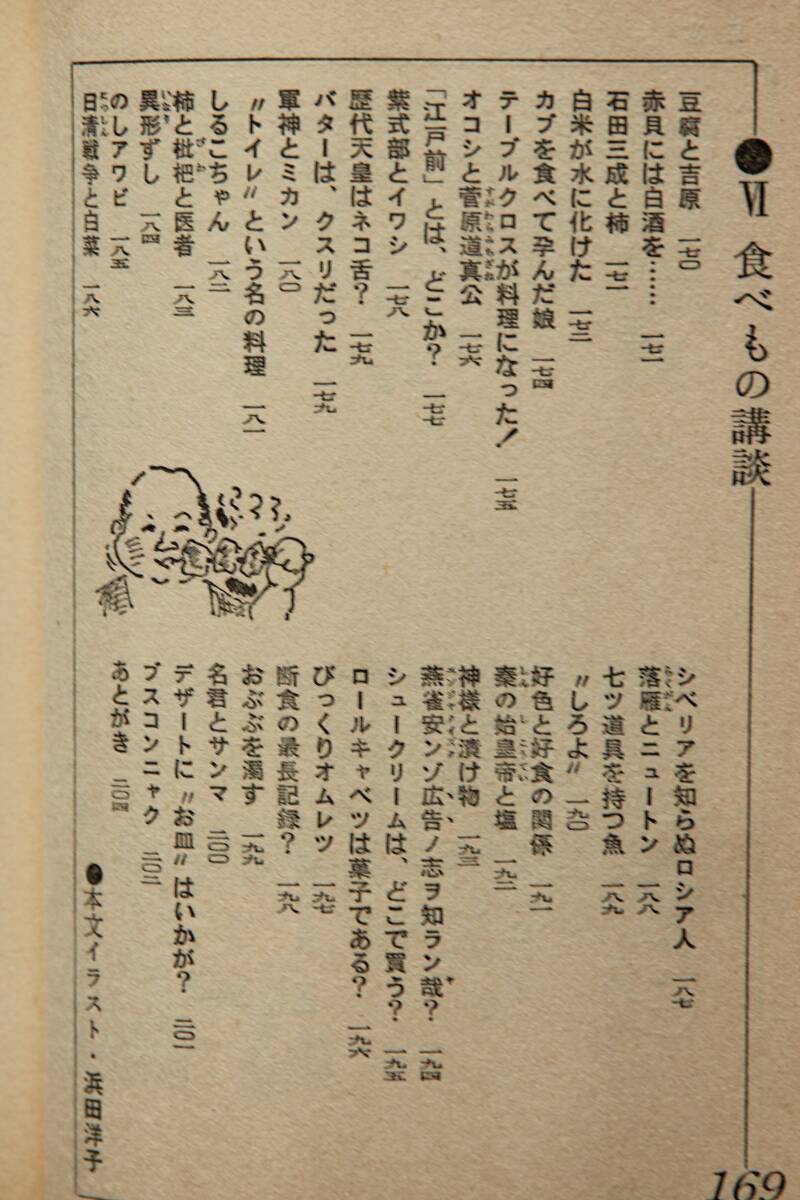 ●Ⅵ 食べもの講談
169
豆腐と吉原 一七〇
赤貝には白酒を…… 一七一
石田三成と柿 一七二
白米が水に化けた 一七三
カブを食べて孕んだ娘 一七四
テーブルクロスが料理になった! 一七五
オコシと菅原道真公 一七六
「江戸前」とは、どこか? 一七七
紫式部とイワシ 一七八
歴代天皇はネコ舌? 一七九
バターは、クスリだった 一七九
軍神とミカン 一八〇
〃トイレ〃という名の料理 一八一
しるこちゃん 一八二
柿と枇杷と医者 一八三
異形ずし 一八四
のしアワビ 一八五
日清戦争と白菜 一八六
シベリアを知らぬロシア人 一八七
落雁とニュートン 一八八
七ツ道具を持つ魚 一八九
〃しろよ〃 一九〇
好色と好食の関係 一九一
秦の始皇帝と塩 一九二
神様と漬け物 一九三
燕雀安ンゾ広告ノ志ヲ知ラン哉? 一九四
シュークリームは、どこで買う? 一九五
ロールキャベツは菓子である? 一九六
びっくりオムレツ 一九七
断食の最長記録? 一九八
おぶぶを濁す 一九九
名君とサンマ 二〇〇
デザートに〃お皿〃はいかが? 二〇一
ブスコンニャク 二〇二
あとがき 二〇四
●本文イラスト・浜田洋子